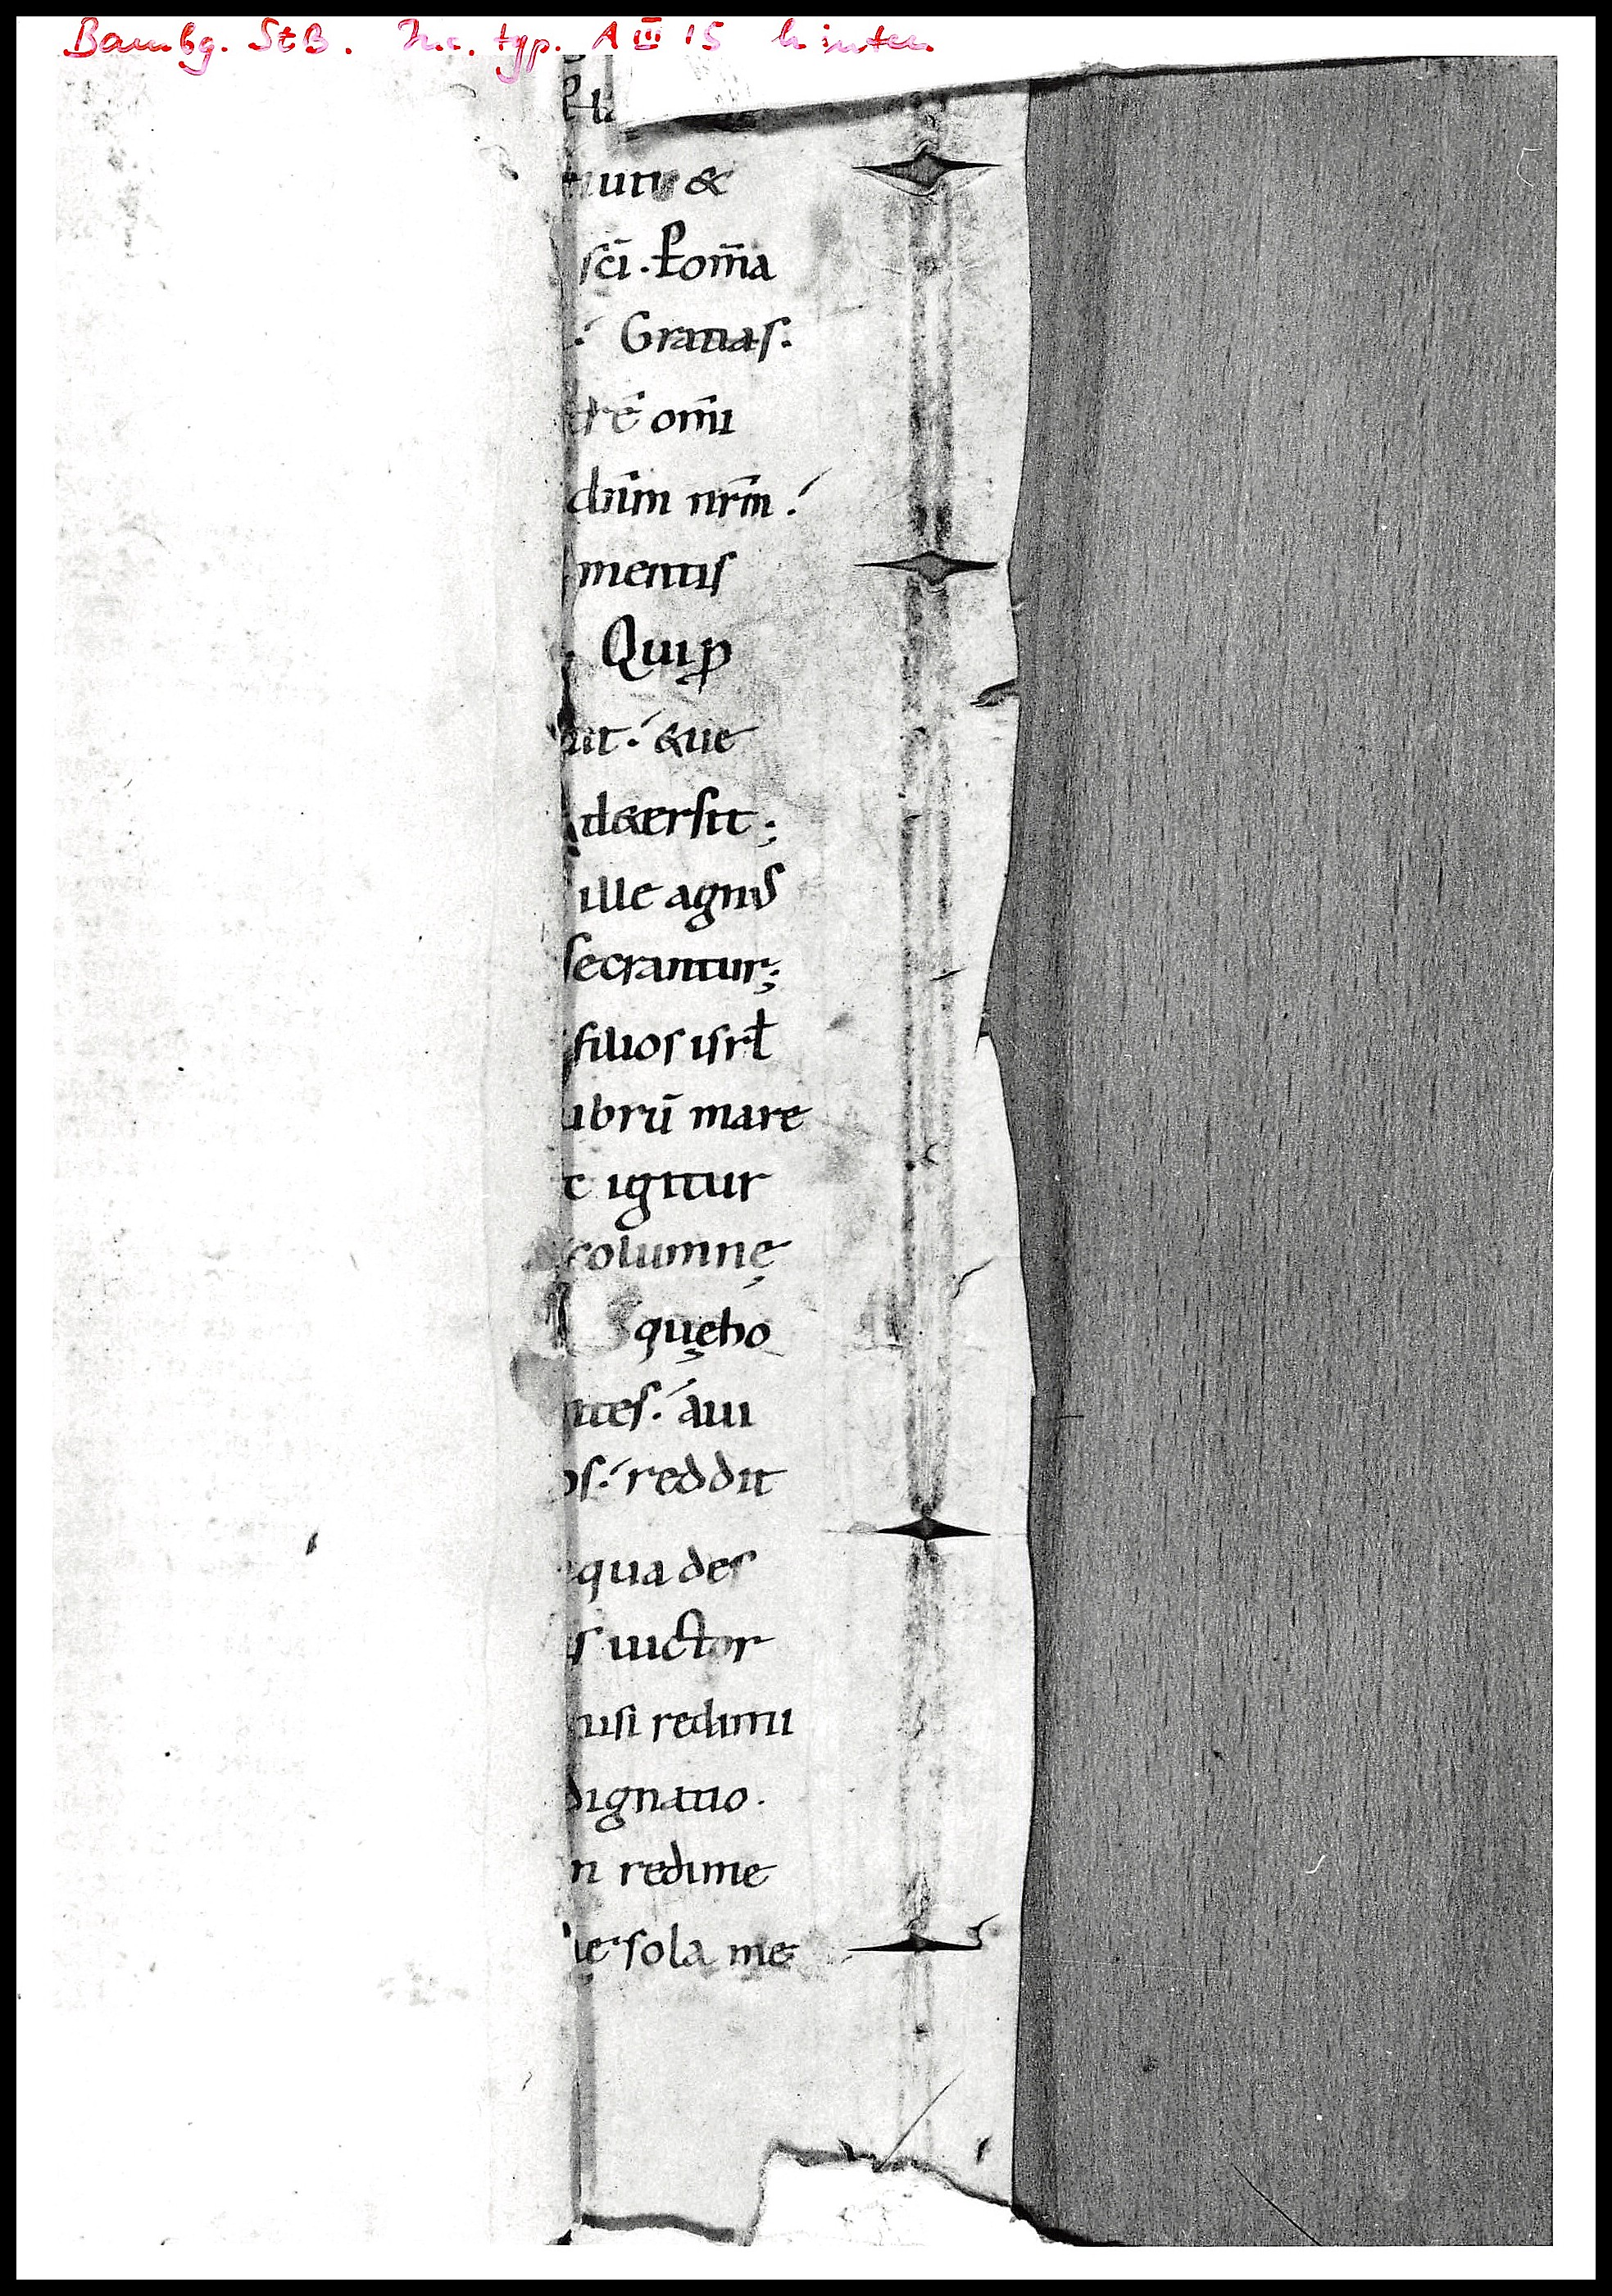 Bambg. StB. Inc. typ. A III 15 hinten
iuit &
sc̄i . Pom̄a
.́ Gratias.
trē om̄i
dn̄m nr̄m .́
mentis
. Qui ꝓ
uit .́ &ue
d&ersit ;
ille agnus
secrantur ;
filios isrł
ubrū mare
c igitur
columnę
quę ho
ntes .́ aui
os .́ reddit
qua des
s uictor
nisi redimi
dignatio .
n redime
sola me